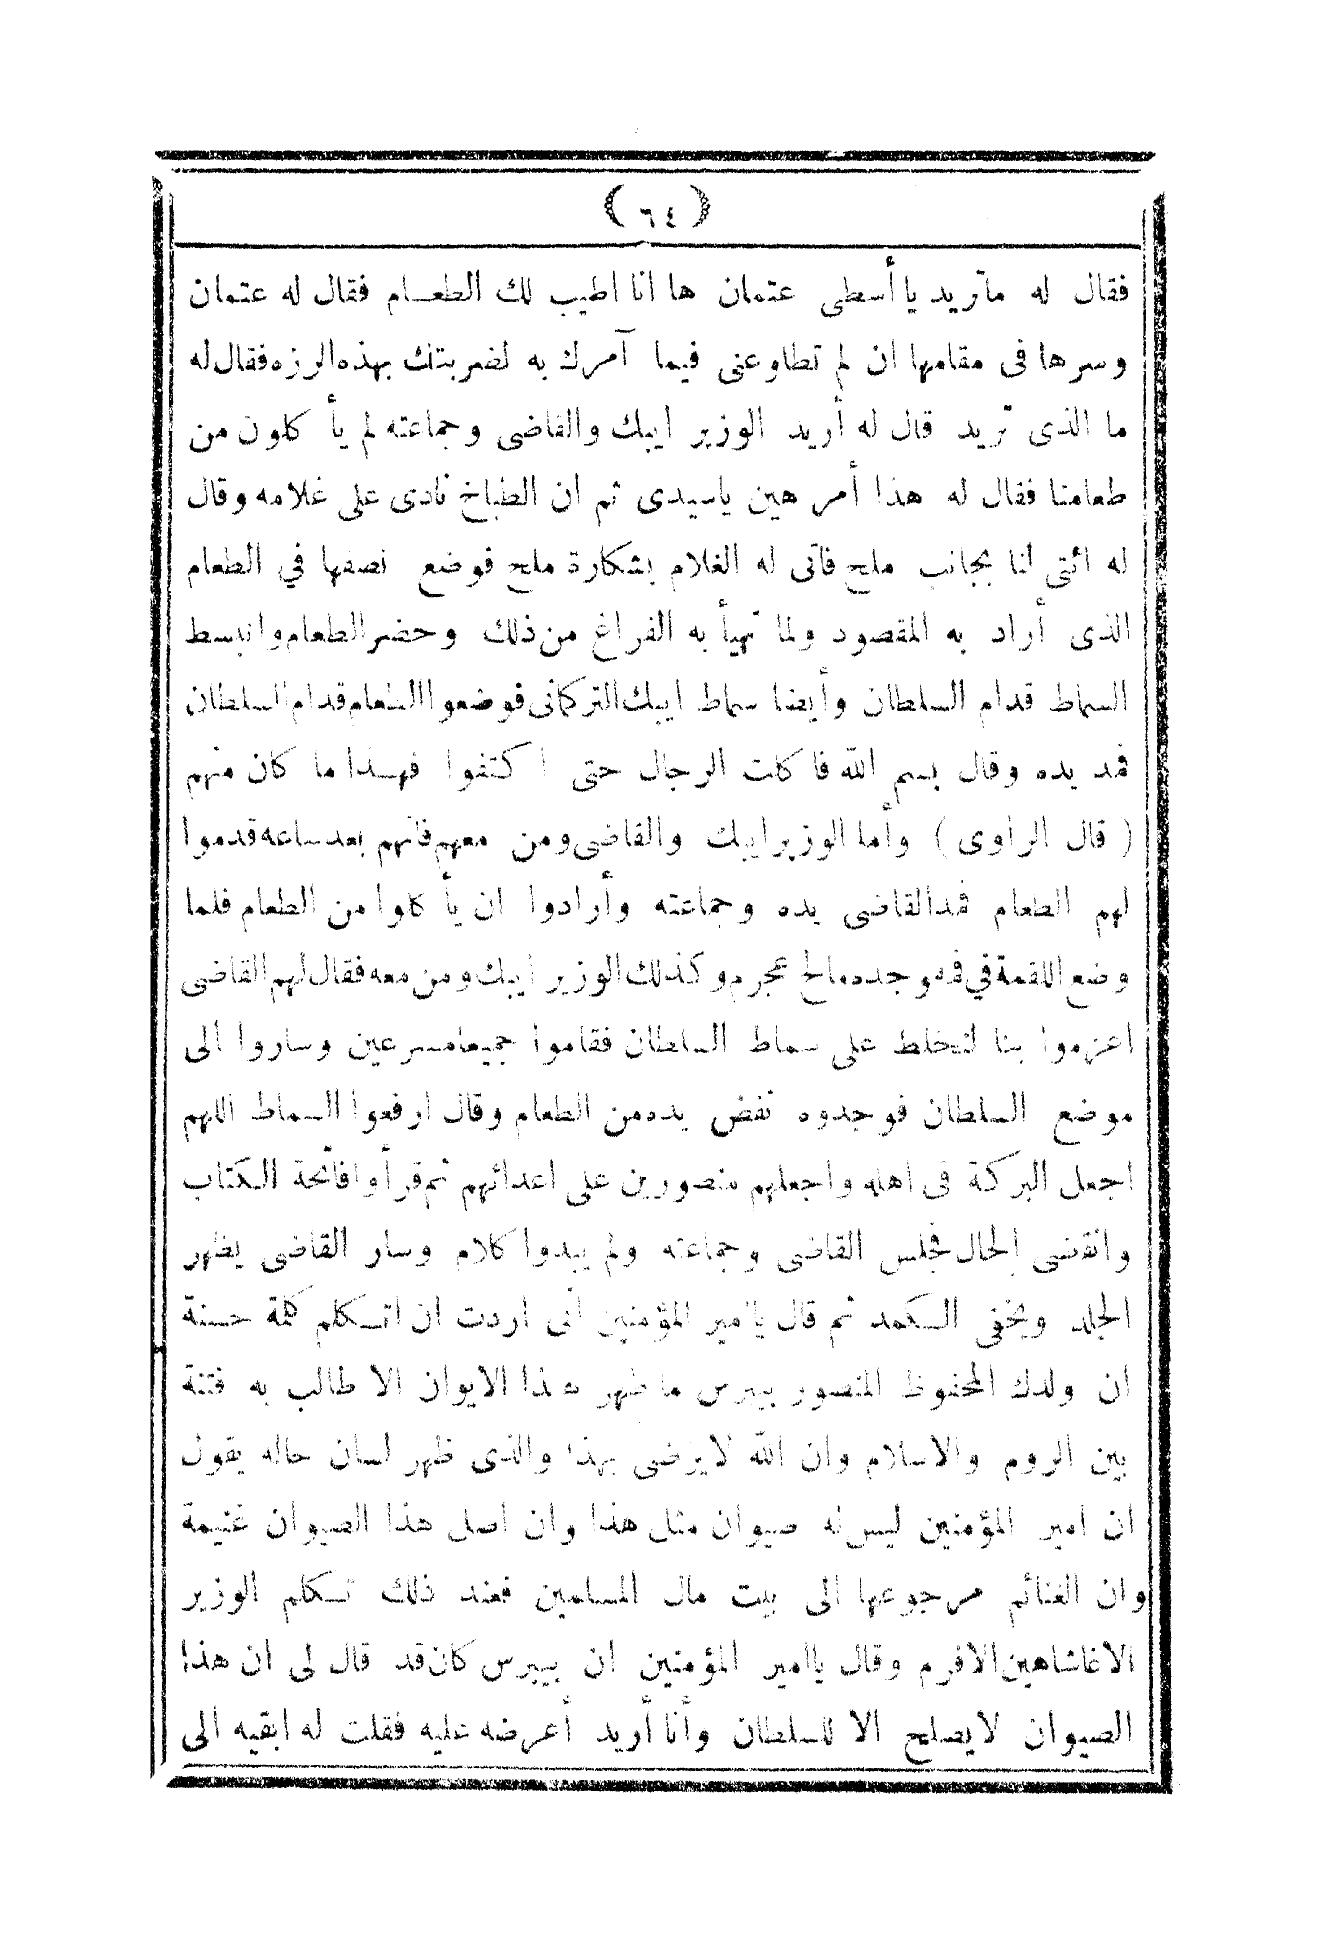 (٦٤)
فقال له ماتريد ياأسطى عتمان ها انا اطيب لك الطعام فقال له عتمان
وسرها فى مقامها ان لم تطاوعنى فيما آمرك به لضربتك بهذه الرزه فقال له
ما الذى تريد قال له أريد الوزير ايبك والقاضى وجماعته لم يأ كلون من
طعامنا فقال له هذا أمر هين ياسيدى ثم ان الطباخ نادى على غلامه وقال
له ائتى لنا بجانب ملح فآتى له الغلام بشكارة ملح فوضع نصفها في الطعام
الذى أراد به المقصود ولما تهيأ به الفراغ من ذلك وحضر الطعام وانبسط
السماط قدام السلطان وأيضا سماط ايبك التركمانى فوضعوا الطعام قدام السلطان
فمد يده وقال بسم الله فا كلت الرجال حتى ا كتفوا فهذا ما كان منهم
( قال الراوى ) وأما الوزير ايبك والقاضى ومن معهم فانهم بعد ساعه قدموا
لهم الطعام فمد القاضى يده وجماعته وأرادوا ان يأ كلوا من الطعام فلما
وضع اللقمة في فمه وجده مالح عجرم وكذلك الوزير ايبك ومن معه فقال لهم القاضى
اعزموا بنا لنخلط على سماط السلطان فقاموا جميعا مسرعين وساروا الى
موضع السلطان فوجدوه نفض يده من الطعام وقال ارفعوا السماط اللهم
اجعل البركة فى اهله واجعلهم منصورين على اعدائهم ثم قرأوا فاتحة الكتاب
وانقضى الحال فجلس القاضى وجماعته ولم يبدوا كلام وسار القاضى يظهر
الجلد ويخفى الكمد ثم قال يا امير المؤمنين أنى اردت ان اتكلم كلمة حسنة
ان ولدك المحفوظ المنصور بيبرس ماظهر هذا الايوان الا طالب به فتنة
بين الروم والاسلام وان الله لايرضى بهذا والذى ظهر لسان حاله يقول
ان امير المؤمنين ليس له صيوان مثل هذا وان اصل هذا الصيوان غنيمة
وان الغنائم مرجوعها الى بيت مال المسلمين فعند ذلك تكلم الوزير
الاغاشاهين الافرم وقال يا امير المؤمنين ان بيبرس كان قد قال لى ان هذا
الصيوان لايصلح الا للسلطان وأنا أريد أعرضه عليه فقلت له ابقيه الى